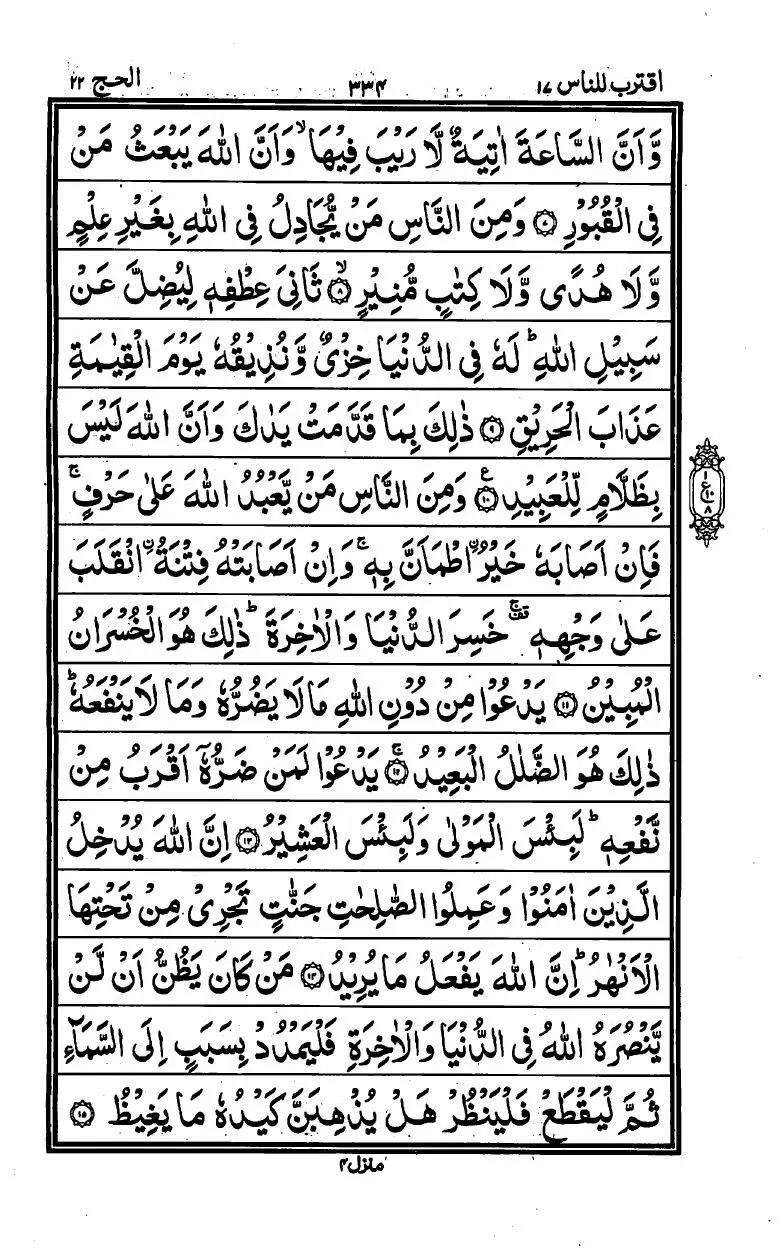 اقترب للناس ١٧ ٣٣٤ الحج ٢٢
وَّاَنَّ السَّاعَةَ اٰتِيَةٌ لَّا رَيْبَ فِيْهَا ۙ وَاَنَّ اللّٰهَ يَبْعَثُ مَنْ
فِي الْقُبُوْرِ ﴿۷﴾ وَمِنَ النَّاسِ مَنْ يُّجَادِلُ فِي اللّٰهِ بِغَيْرِ عِلْمٍ
وَّلَا هُدًى وَّلَا كِتٰبٍ مُّنِيْرٍ ۙ﴿۸﴾ ثَانِيَ عِطْفِهٖ لِيُضِلَّ عَنْ
سَبِيْلِ اللّٰهِ ؕ لَهٗ فِي الدُّنْيَا خِزْيٌ وَّنُذِيْقُهٗ يَوْمَ الْقِيٰمَةِ
عَذَابَ الْحَرِيْقِ ﴿۹﴾ ذٰلِكَ بِمَا قَدَّمَتْ يَدٰكَ وَاَنَّ اللّٰهَ لَيْسَ
بِظَلَّامٍ لِّلْعَبِيْدِ ﴿۱۰﴾ ع وَمِنَ النَّاسِ مَنْ يَّعْبُدُ اللّٰهَ عَلٰى حَرْفٍ ۚ
فَاِنْ اَصَابَهٗ خَيْرُ ۨاطْمَاَنَّ بِهٖ ۚ وَاِنْ اَصَابَتْهُ فِتْنَةُ ۨانْقَلَبَ
عَلٰى وَجْهِهٖ ۚ خَسِرَ الدُّنْيَا وَالْاٰخِرَةَ ؕ ذٰلِكَ هُوَ الْخُسْرَانُ
الْمُبِيْنُ ﴿۱۱﴾ يَدْعُوْا مِنْ دُوْنِ اللّٰهِ مَا لَا يَضُرُّهٗ وَمَا لَا يَنْفَعُهٗ ؕ
ذٰلِكَ هُوَ الضَّلٰلُ الْبَعِيْدُ ۚ﴿۱۲﴾ يَدْعُوْا لَمَنْ ضَرُّهٗۤ اَقْرَبُ مِنْ
نَّفْعِهٖ ؕ لَبِئْسَ الْمَوْلٰى وَلَبِئْسَ الْعَشِيْرُ ﴿۱۳﴾ اِنَّ اللّٰهَ يُدْخِلُ
الَّذِيْنَ اٰمَنُوْا وَعَمِلُوا الصّٰلِحٰتِ جَنّٰتٍ تَجْرِيْ مِنْ تَحْتِهَا
الْاَنْهٰرُ ؕ اِنَّ اللّٰهَ يَفْعَلُ مَا يُرِيْدُ ﴿۱۴﴾ مَنْ كَانَ يَظُنُّ اَنْ لَّنْ
يَّنْصُرَهُ اللّٰهُ فِي الدُّنْيَا وَالْاٰخِرَةِ فَلْيَمْدُدْ بِسَبَبٍ اِلَى السَّمَآءِ
ثُمَّ لْيَقْطَعْ فَلْيَنْظُرْ هَلْ يُذْهِبَنَّ كَيْدُهٗ مَا يَغِيْظُ ﴿۱۵﴾
منزل ۴
١
ع
١٠
٨